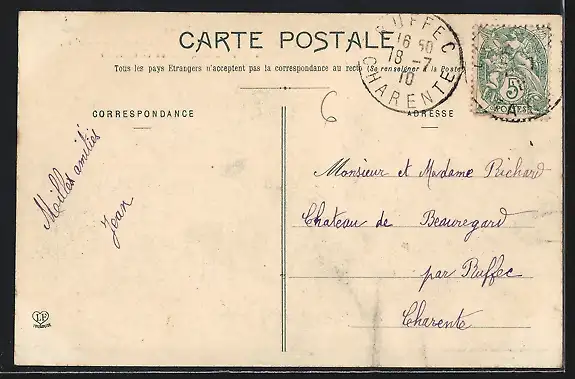 CARTE POSTALE
Tous les pays Etrangers n'acceptent pas la correspondance au recto (Se renseigner à la Poste)
RUFFEC
16 50
18 -7
10
CHARENTE
5
POSTES
6
CORRESPONDANCE
Milles amitiés
Jean
ADRESSE
Monsieur et Madame Richard
Chateau de Beauregard
par Ruffec
Charente
LF
TOULOUSE